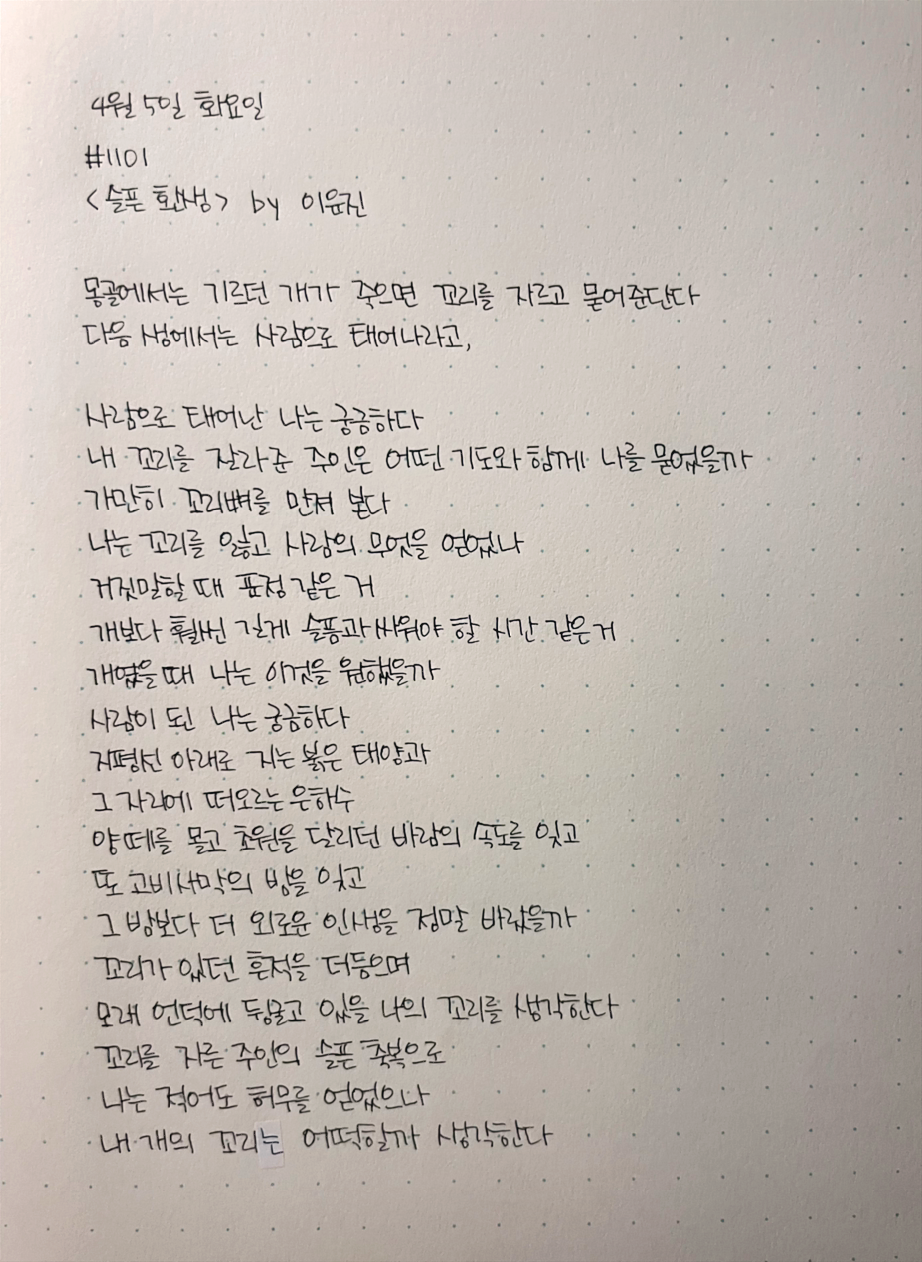 4월 5일 화요일
#1101
<슬픈 환생> by 이윤진
몽골에서는 기르던 개가 죽으면 꼬리를 자르고 묻어준단다
다음 생에서는 사람으로 태어나라고,
사람으로 태어난 나는 궁금하다
내 꼬리를 잘라준 주인은 어떤 기도와 함께 나를 묻었을까
가만히 꼬리뼈를 만져 본다
나는 꼬리를 잃고 사람의 무엇을 얻었나
거짓말할 때 표정 같은 거
개보다 훨씬 길게 슬픔과 싸워야 할 시간 같은거
개였을 때 나는 이것을 원했을까
사람이 된 나는 궁금하다
지평선 아래로 지는 붉은 태양과
그 자리에 떠오르는 은하수
양떼를 몰고 초원을 달리던 바람의 속도를 잊고
또 고비사막의 밤을 잊고
그 밤보다 더 외로운 인생을 정말 바랐을까
꼬리가 있던 흔적을 더듬으며
모래 언덕에 뒹굴고 있을 나의 꼬리를 생각한다
꼬리를 자른 주인의 슬픈 축복으로
나는 적어도 허무를 얻었으나
내 개의 꼬리는 어떡할까 생각한다